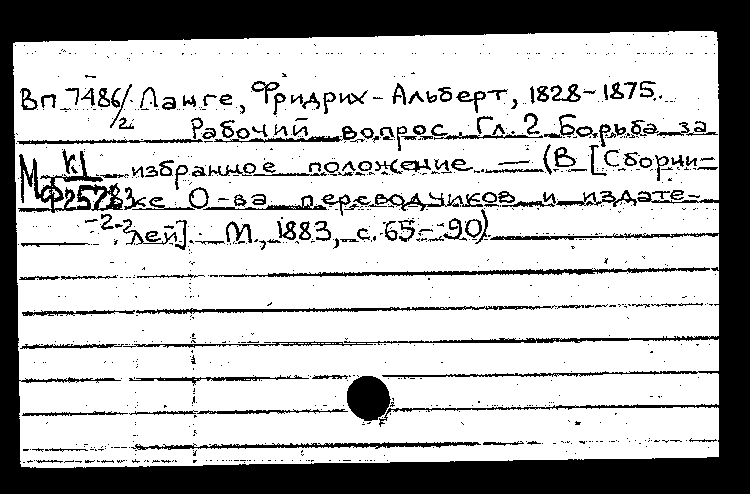 Вп 7486/2 Ланге, Фридрих-Альберт, 1828-1875.
Рабочий вопрос. Гл. 2 Борьба за
М К1 избранное положение — (В [Сборни-
Ф25783 ке О-ва переводчиков и издате-
-2-2 лей]. М., 1883, с. 65-90)